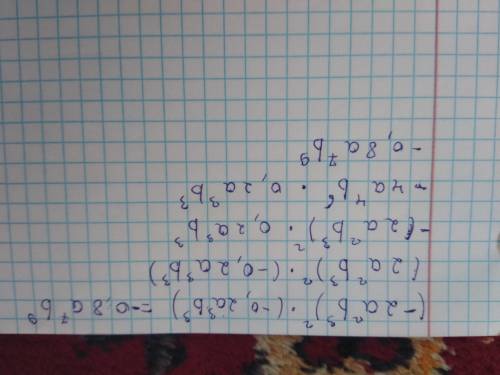 (-2a²b³)² · (-0,2a³b³) = -0,8a⁷b⁹
(2a²b³)² · (-0,2a³b³)
-(2a²b³)² · 0,2a³b³
-4a⁴b⁶ · 0,2a³b³
-0,8a⁷b⁹